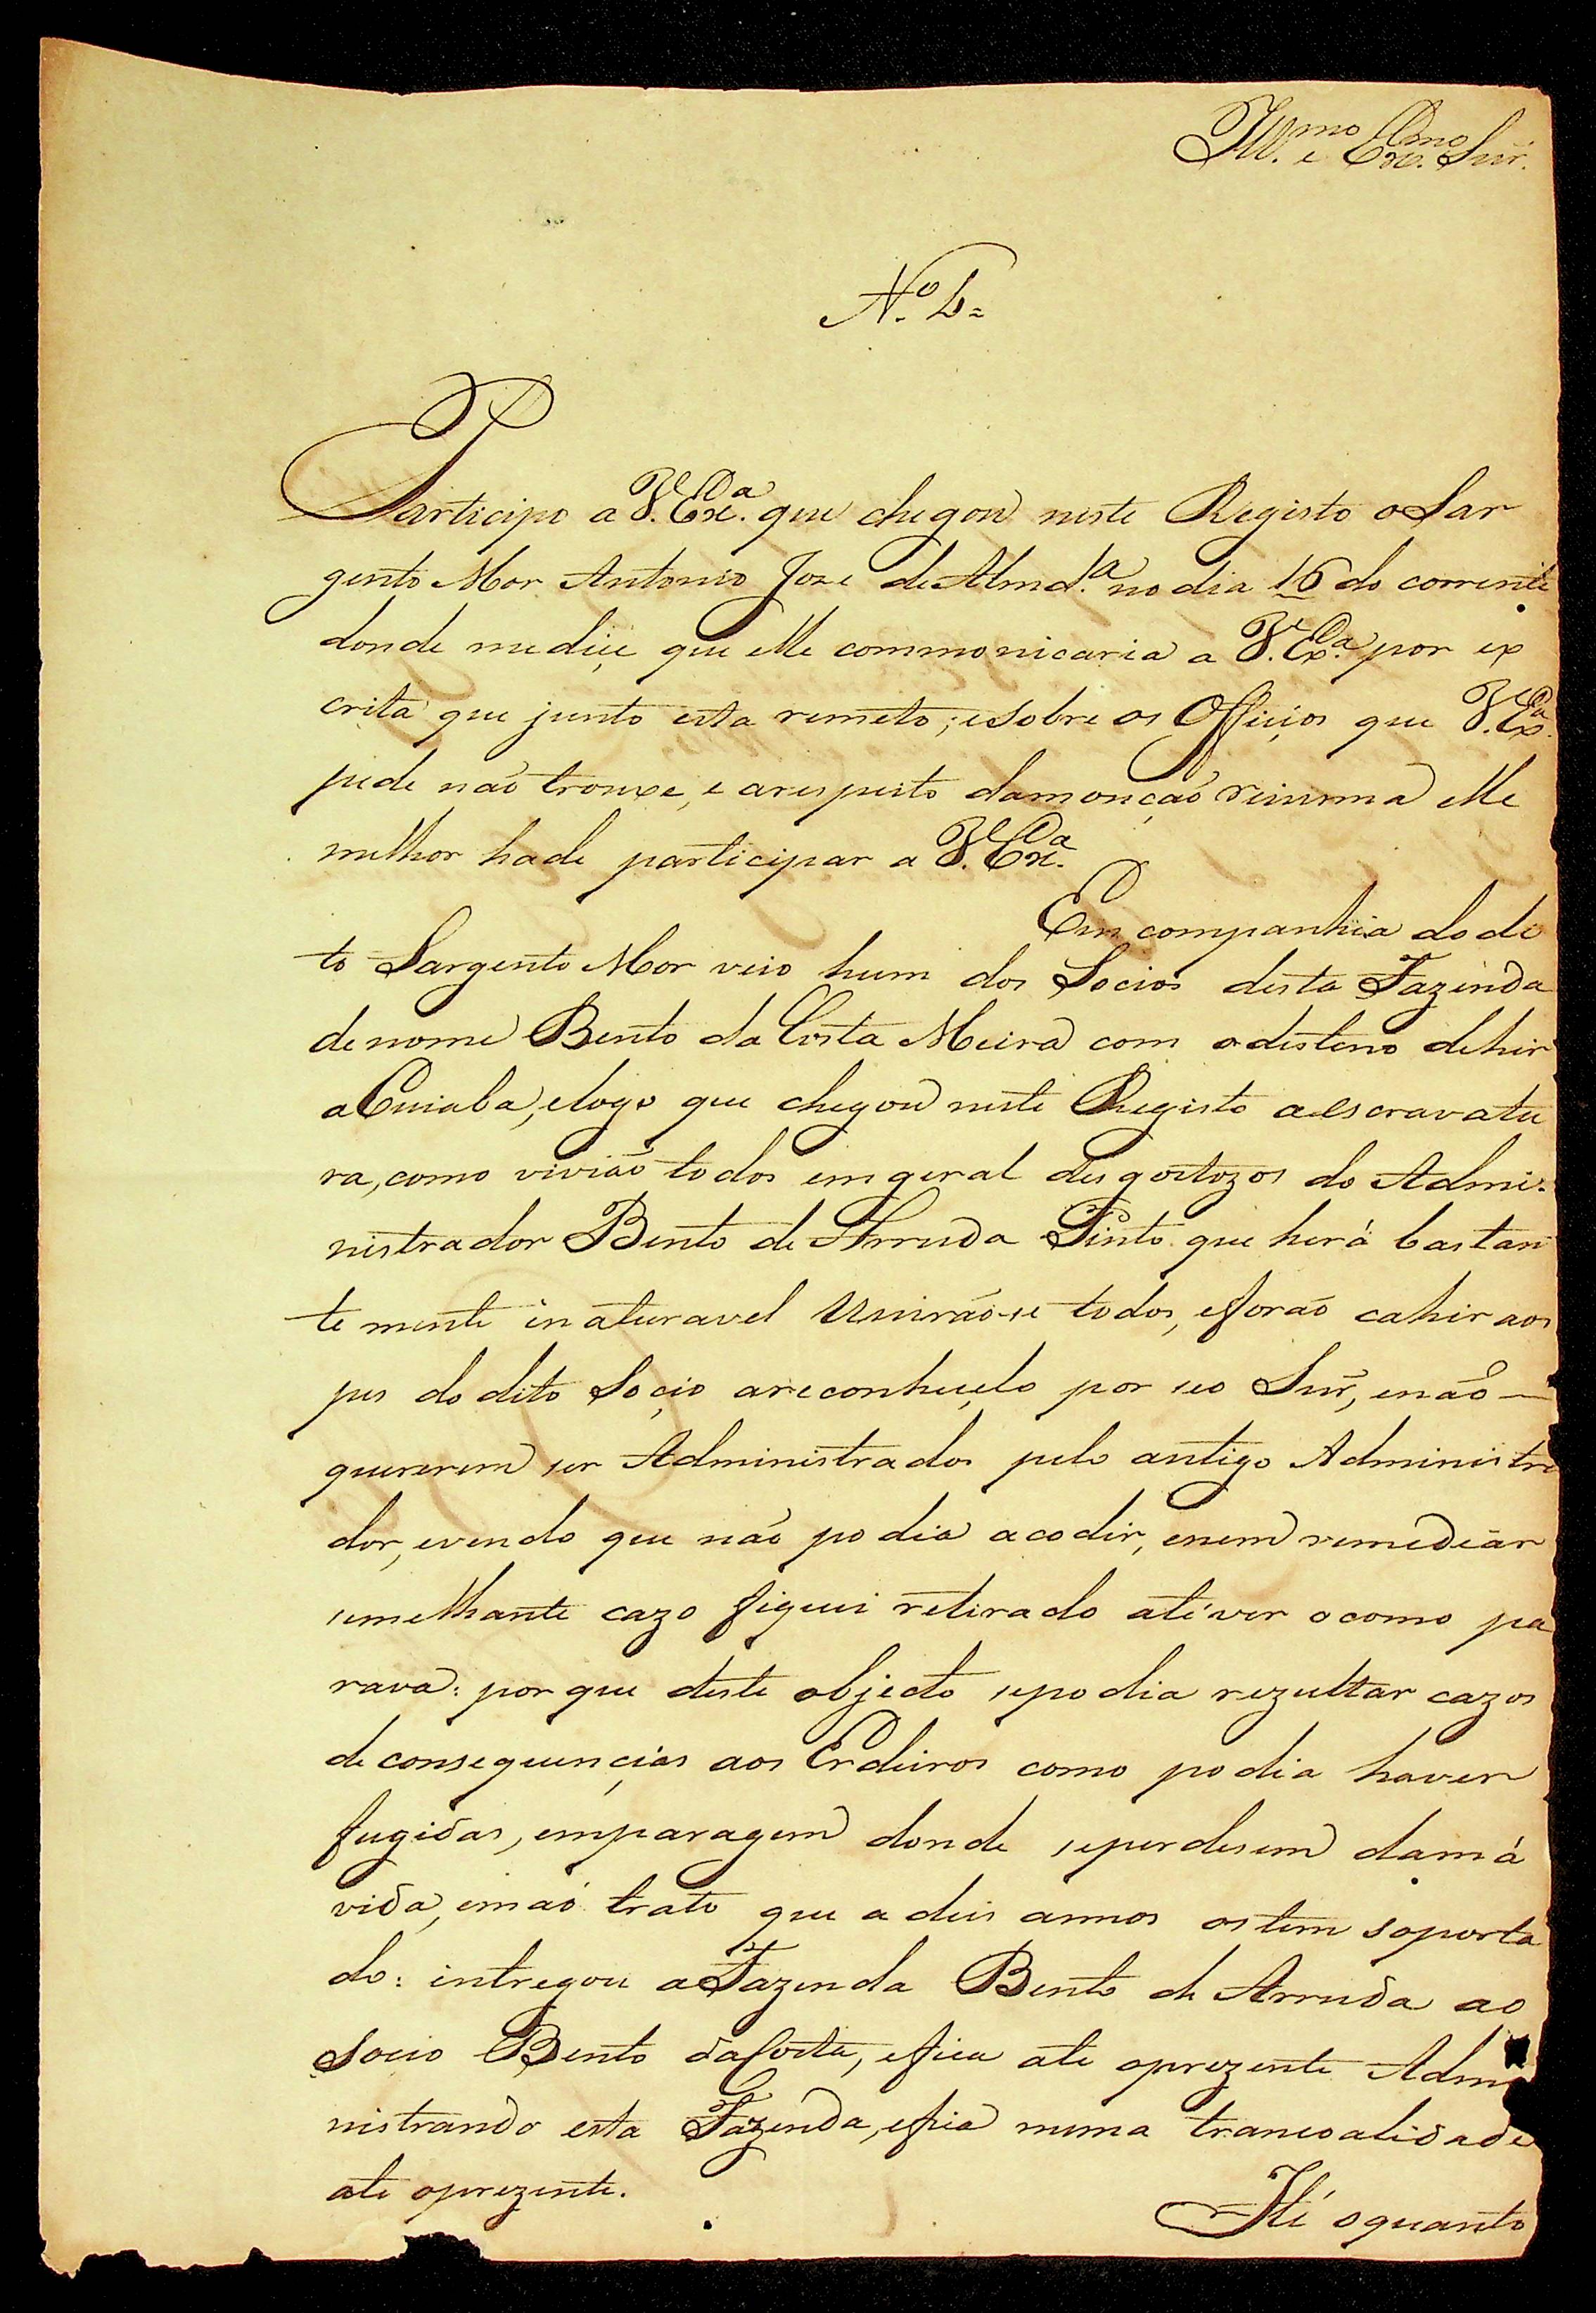 Ill.mo e Ex.mo Snr.
N.o 6=
Participo a V. Ex.a que chegou neste Registo o Sar
gento Mor Antonio Joze de Almd.a no dia 16 do corrente
donde mediçe que elle commonicaria a V. Ex.a por ex
crita que junto esta remeto; esobre os Offiçios que V. Ex.a
pede não trouxe, e arespeito damonção reiuna elle
milhor hade participar a V. Ex.a
Em companhia do di
to Sargento Mor veio hum dos Socios desta Fazenda
denome Bento da Costa Meira com odisteno dehir
a Cuiaba, elogo que chegou neste Registo aescravatu
ra, como vivião todos emgeral desgostozos do Admi-
nistrador Bento de Arruda Pinto que herá bastan
te mente inaturavel Unirão-se todos, eforão cahir aos
pes do dito Soçio areconheçelo por seo Snr, enão —
quererem ser Administrados pelo antigo Administra
dor, evendo que não podia acodir, enem remediar
semelhante cazo fiquei retirado atéver ocomo pa
rava: por que deste objecto sepodia rezultar cazos
de consequençias aos Erdeiros como podia haver
fugidas, emparagem donde seperdesem damá
vida, emaó trato que a deis annos ostem soporta
do: intregou aFazenda Bento de Arruda ao
Socio Bento daCosta, efica ate oprezente Admi
nistrando esta Fazenda, efica numa trancoalidade
ate oprezente.
Hé oquanto